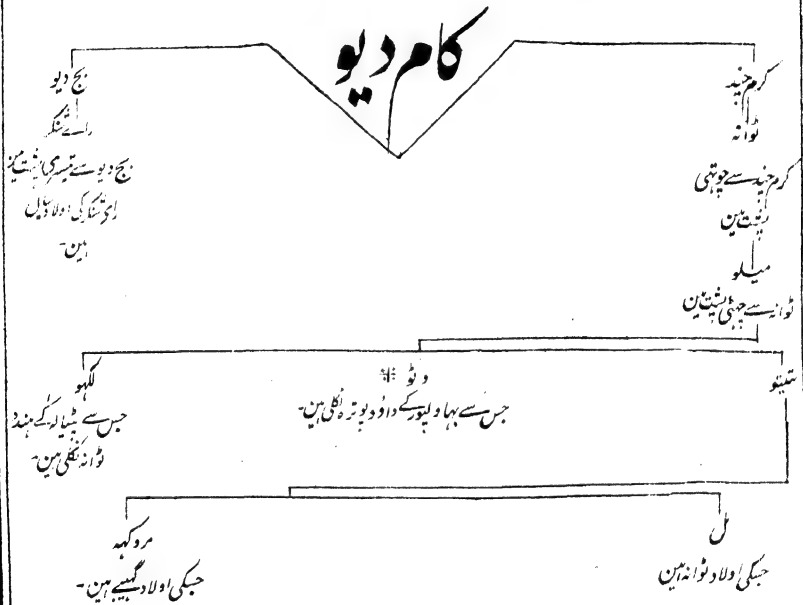 کام دیو
کرم چند
ٹوانہ
کرم چند سے چوتہی
پشت مین
میلو
ٹوانہ سے چہٹی پشت مین
بج دیو
راے شنکر
بج دیو سے تیسری پشت مین
رای شنکر کی اولاد سیال
ہین۔
سیتو
وٹو *
جس سے بہاولپور کے داؤد پوترہ نکلی ہین۔
لکہو
جس سے پٹیالہ کے ہندو
ٹوانہ نکلی ہین۔
مل
جسکی اولاد ٹوانہ ہین
مروکہہ
جسکی اولاد گہیبے ہین۔